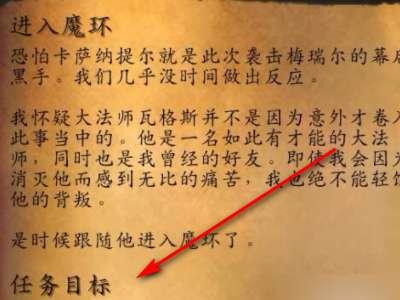 进入魔环
恐怕卡萨纳提尔就是此次袭击梅瑞尔的幕后
黑手。我们几乎没时间做出反应。
我怀疑大法师瓦格斯并不是因为意外才卷入
此事当中的。他是一名如此有才能的大法
师，同时也是我曾经的好友。即使我会因为
消灭他而感到无比的痛苦，我也绝不能轻饶
他的背叛。
是时候跟随他进入魔环了。
任务目标